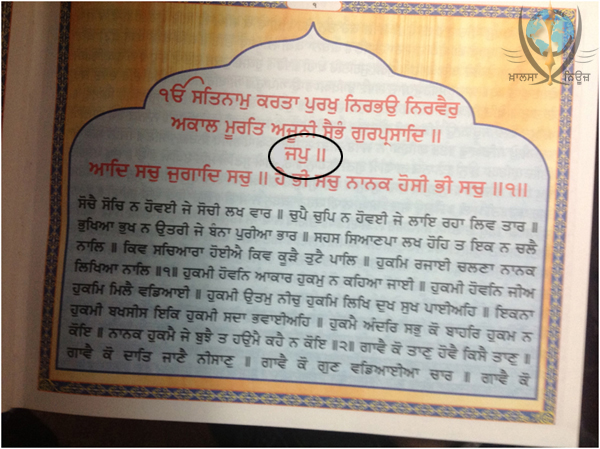 ੧
ਖ਼ਾਲਸਾ ਨਿਊਜ਼
ੴ ਸਤਿਨਾਮੁ ਕਰਤਾ ਪੁਰਖੁ ਨਿਰਭਉ ਨਿਰਵੈਰੁ
ਅਕਾਲ ਮੂਰਤਿ ਅਜੂਨੀ ਸੈਭੰ ਗੁਰਪ੍ਰਸਾਦਿ ॥
ਜਪੁ ॥
ਆਦਿ ਸਚੁ ਜੁਗਾਦਿ ਸਚੁ ॥ ਹੈ ਭੀ ਸਚੁ ਨਾਨਕ ਹੋਸੀ ਭੀ ਸਚੁ ॥੧॥
ਸੋਚੈ ਸੋਚਿ ਨ ਹੋਵਈ ਜੇ ਸੋਚੀ ਲਖ ਵਾਰ ॥ ਚੁਪੈ ਚੁਪਿ ਨ ਹੋਵਈ ਜੇ ਲਾਇ ਰਹਾ ਲਿਵ ਤਾਰ ॥
ਭੁਖਿਆ ਭੁਖ ਨ ਉਤਰੀ ਜੇ ਬੰਨਾ ਪੁਰੀਆ ਭਾਰ ॥ ਸਹਸ ਸਿਆਣਪਾ ਲਖ ਹੋਹਿ ਤ ਇਕ ਨ ਚਲੈ
ਨਾਲਿ ॥ ਕਿਵ ਸਚਿਆਰਾ ਹੋਈਐ ਕਿਵ ਕੂੜੈ ਤੁਟੈ ਪਾਲਿ ॥ ਹੁਕਮਿ ਰਜਾਈ ਚਲਣਾ ਨਾਨਕ
ਲਿਖਿਆ ਨਾਲਿ ॥੧॥ ਹੁਕਮੀ ਹੋਵਨਿ ਆਕਾਰ ਹੁਕਮੁ ਨ ਕਹਿਆ ਜਾਈ ॥ ਹੁਕਮੀ ਹੋਵਨਿ ਜੀਅ
ਹੁਕਮਿ ਮਿਲੈ ਵਡਿਆਈ ॥ ਹੁਕਮੀ ਉਤਮੁ ਨੀਚੁ ਹੁਕਮਿ ਲਿਖਿ ਦੁਖ ਸੁਖ ਪਾਈਅਹਿ ॥ ਇਕਨਾ
ਹੁਕਮੀ ਬਖਸੀਸ ਇਕਿ ਹੁਕਮੀ ਸਦਾ ਭਵਾਈਅਹਿ ॥ ਹੁਕਮੈ ਅੰਦਰਿ ਸਭੁ ਕੋ ਬਾਹਰਿ ਹੁਕਮ ਨ
ਕੋਇ ॥ ਨਾਨਕ ਹੁਕਮੈ ਜੇ ਬੁਝੈ ਤ ਹਉਮੈ ਕਹੈ ਨ ਕੋਇ ॥੨॥ ਗਾਵੈ ਕੋ ਤਾਣੁ ਹੋਵੈ ਕਿਸੈ ਤਾਣੁ ॥
ਗਾਵੈ ਕੋ ਦਾਤਿ ਜਾਣੈ ਨੀਸਾਣੁ ॥ ਗਾਵੈ ਕੋ ਗੁਣ ਵਡਿਆਈਆ ਚਾਰ ॥ ਗਾਵੈ ਕੋ